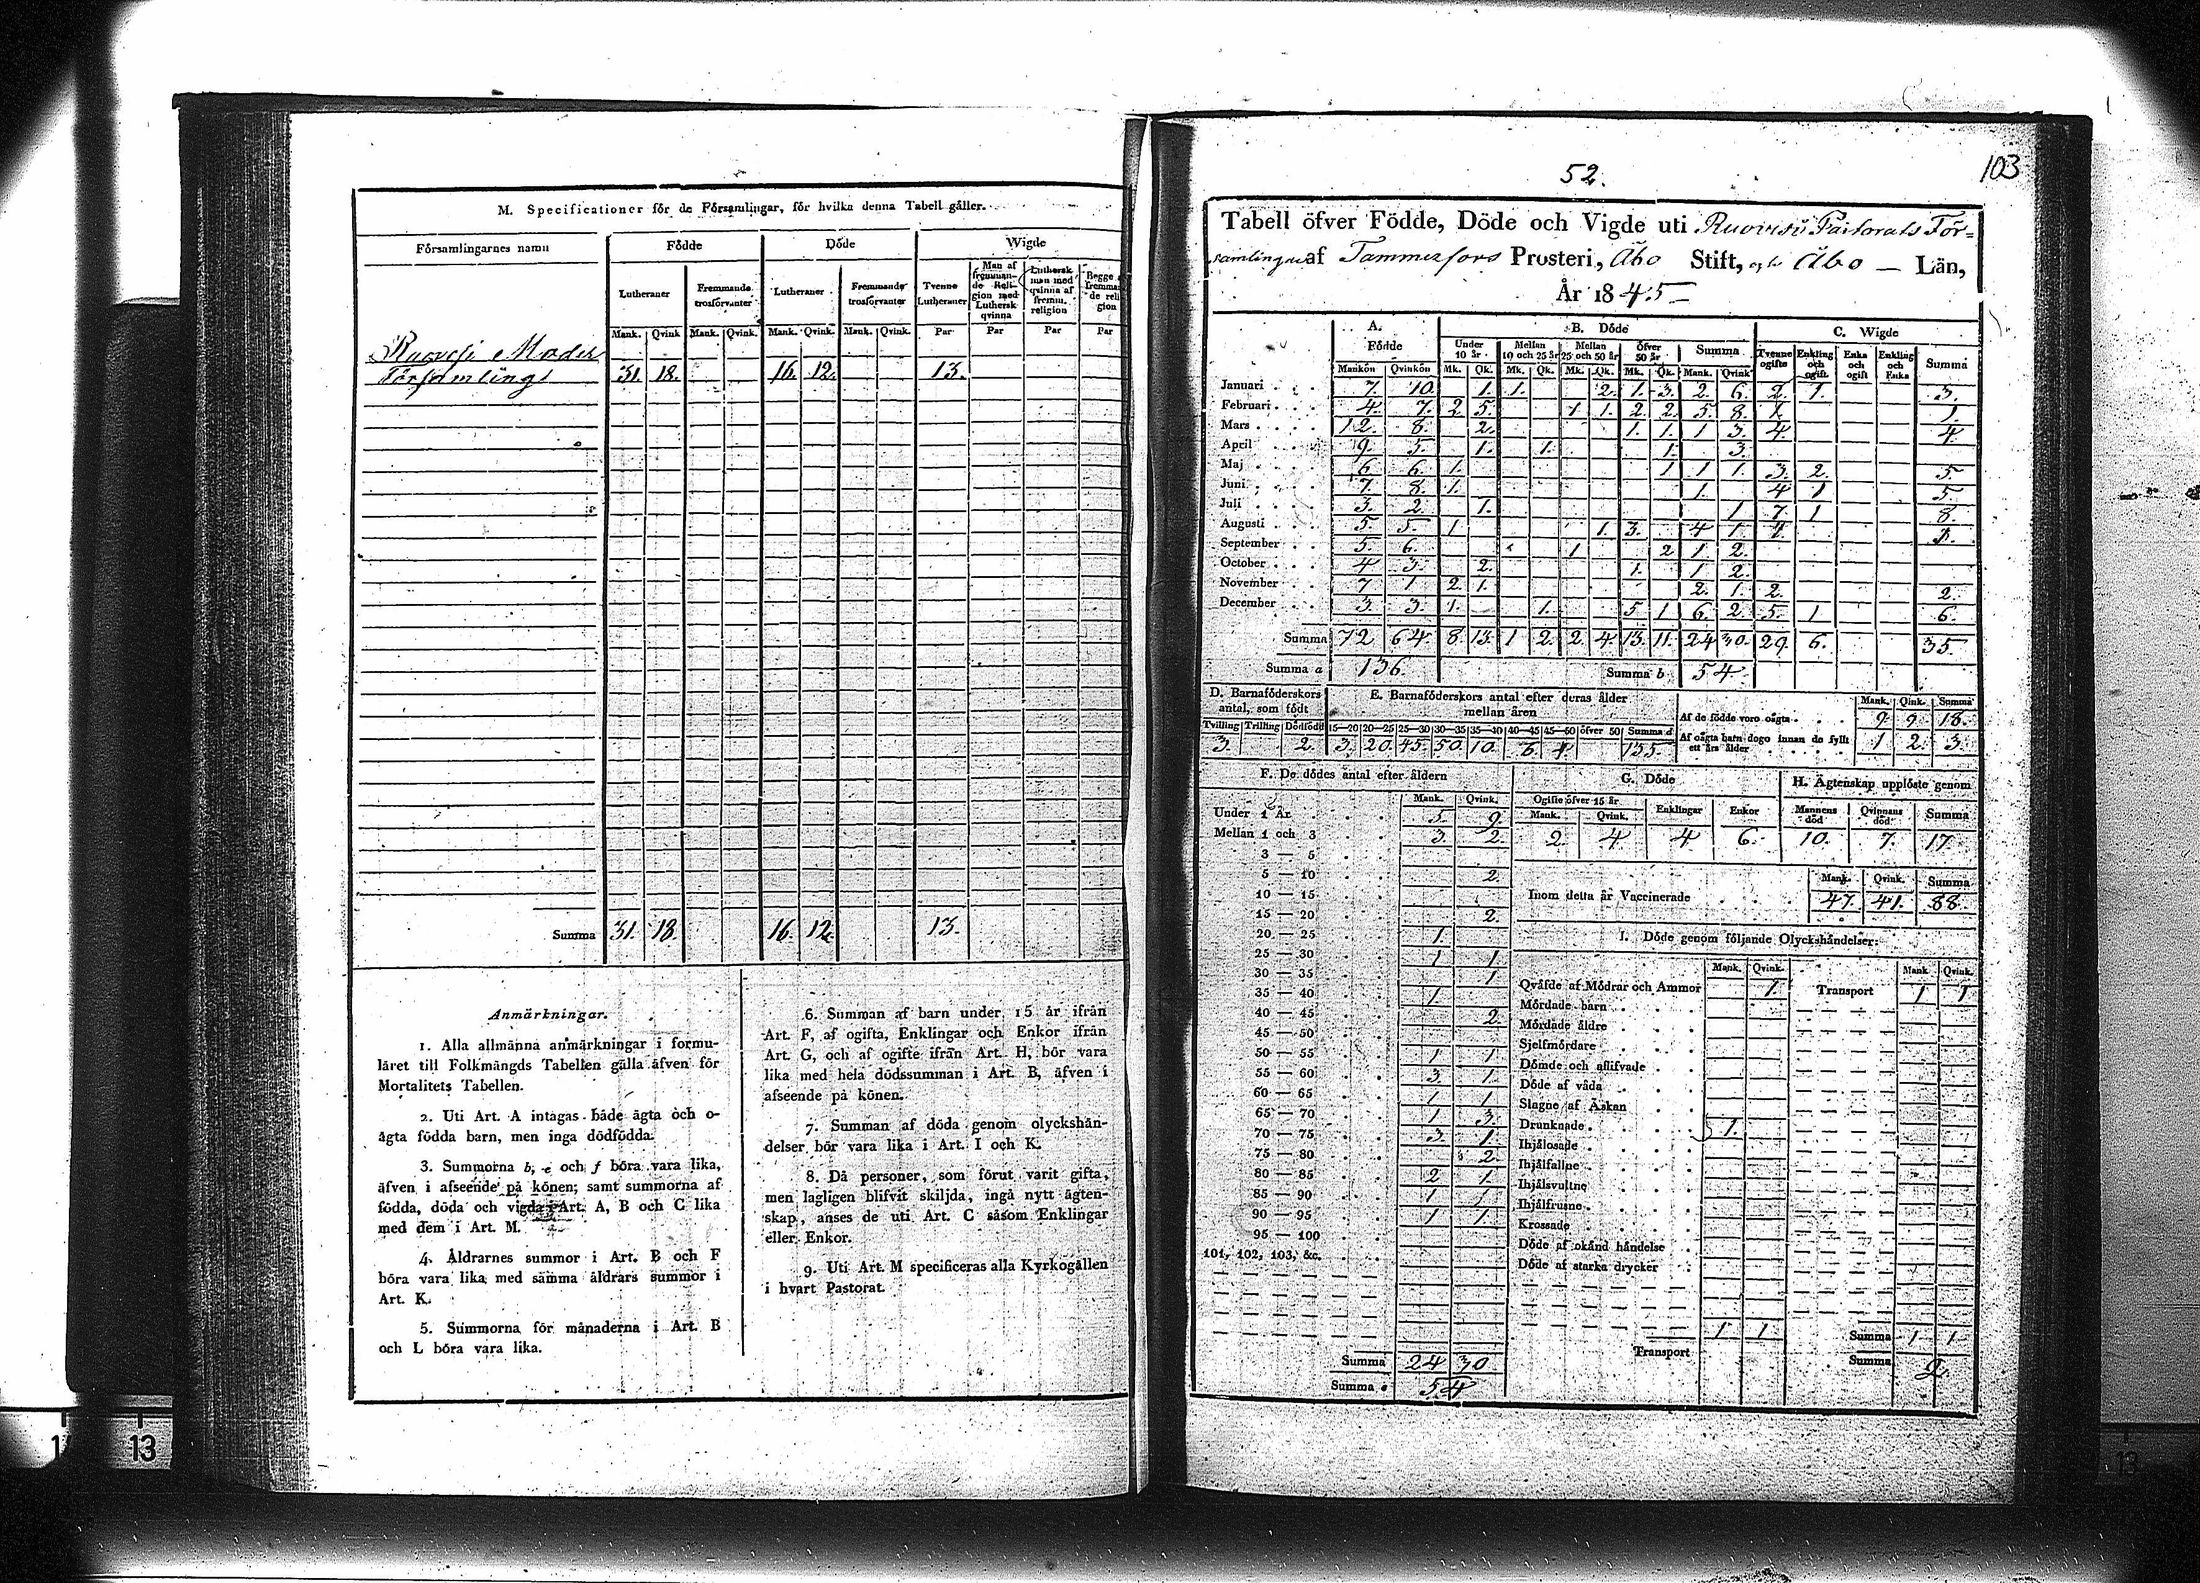 M. Specificationer för de Församlingar, för hvilka denna Tabell gäller.
Församlingarnes namn Födde Döde Wigde
Lutheraner Fremmande trosförvanter Lutheraner Fremmande trosförvanter Tvenne Lutheraner Man af fremmande Religion med Luthersk qvinna Luthersk man med qvinna af fremm. religion Begge fremmande religion
Mank. Qvink Mank. Qvink. Mank. Qvink. Mank. Qvink. Par Par Par Par
Ruovesi Moder
Församlings 31. 18. 16. 12. 13.
Summa 31. 18 16. 12. 13.
Anmärkningar.
1. Alla allmänna anmärkningar i formu-
läret till Folkmängds Tabellen gälla äfven för
Mortalitets Tabellen.
2. Uti Art. A intagas både ägta och o-
ägta födda barn, men inga dödfödda.
3. Summorna b, e och f böra vara lika,
äfven i afseende på könen; samt summorna af
födda, döda och vigda i Art. A, B och C lika
med dem i Art. M.
4. Åldrarnes summor i Art. B och F
böra vara lika med samma åldrars summor i
Art. K.
5. Summorna för månaderna i Art. B
och L böra vara lika.
6. Summan af barn under 15 år ifrån
Art. F, af ogifta, Enklingar och Enkor ifrån
Art. G, och af ogifte ifrån Art. H, bör vara
lika med hela dödssumman i Art. B, äfven i
afseende på könen.
7. Summan af döda genom olyckshän-
delser bör vara lika i Art. I och K.
8. Då personer, som förut varit gifta,
men lagligen blifvit skiljda, ingå nytt ägten-
skap, anses de uti Art. C såsom Enklingar
eller Enkor.
9. Uti Art. M specificeras alla Kyrkogällen
i hvart Pastorat.
52.
103
Tabell öfver Födde, Döde och Vigde uti Ruovesi Pastorats För=
samlingar af Tammerfors Prosteri, Åbo Stift, och Åbo — Län,
År 1845
A. Födde B. Döde C. Wigde
Under 10 år Mellan 10 och 25 år Mellan 25 och 50 år öfver 50 år Summa Tvenne ogifte Enkling och ogift Enka och ogift Enkling och Enka Summa
Mankön Qvinkön Mk. Qk. Mk. Qk. Mk. Qk. Mk. Qk. Mank. Qvink
Januari 7. 10. 1. 1. 2. 1. 3. 2. 6. 2. 1. 3.
Februari 4. 7. 2 5. 1 1. 2. 2 5. 8. 1. 1.
Mars 12. 8. 2. 1. 1. 1 3. 4. 4.
April 9. 5. 1. 1. 1. 3.
Maj 6 6. 1. 1 1 1. 3. 2. 5.
Juni 7. 8. 1. 1. 4 1 5.
Juli 3. 2. 1. 1 7. 1 8.
Augusti 5. 5. 1 1. 3. 4 1. 1. 1.
September 5. 6. 1 2 1 2.
October 4 3. 2. 1. 1 2.
November 7 1 2. 1. 2. 1. 2. 2.
December 3 3. 1. 1. 5 1 6. 2. 5. 1 6.
Summa 72 64. 8 13. 1 2. 2. 4. 13. 11. 24 30. 29. 6. 35.
Summa a 136. Summa b 54
D. Barnaföderskors antal, som födt
Tvilling Trilling Dödfödd
3. 2.
E. Barnaföderskors antal efter deras ålder mellan åren
15—20 20—25 25—30 30—35 35—40 40—45 45—50 öfver 50 Summa d
3. 20. 45. 50. 10. 6. 1. 135.
Mank. Qink. Summa
Af de födde voro oägta 9. 9. 18.
Af oägta barn dogo innan de fyllt ett års ålder 1 2. 3.
F. De dödes antal efter åldern
Mank. Qvink.
Under 1 År 5. 9.
Mellan 1 och 3 3. 2.
3 — 5
5 — 10 2.
10 — 15
15 — 20 2.
20 — 25 1.
25 — 30 1 1
30 — 35 1
35 — 40 1
40 — 45 2.
45 — 50
50 — 55 1 1
55 — 60 3. 1.
60 — 65 1 1
65 — 70 1 3.
70 — 75 3. 1.
75 — 80 2.
80 — 85 2 1.
85 — 90 1 1
90 — 95 1 1.
95 — 100
101, 102, 103, &c.
Summa 24 30
Summa e 54
G. Döde
Ogifte öfver 15 år Enklingar Enkor
Mank. Qvink.
2. 4 4 6.
H. Ägtenskap upplöste genom
Mannens död Qvinnans död Summa
10. 7. 17.
Mank. Qvink. Summa
Inom detta år Vaccinerade 47. 41. 88.
I. Döde genom följande Olyckshändelser:
Mank. Qvink. Mank Qvink.
Qväfde af Mödrar och Ammor 1. Transport 1 1
Mördade barn
Mördade äldre
Sjelfmördare
Dömde och aflifvade
Döde af våda
Slagne af Åskan
Drunknade 1.
Ihjälosade
Ihjälfallne
Ihjälsvultne
Ihjälfrusne
Krossade
Döde af okänd händelse
Döde af starka drycker
Transport 1 1. Summa 1 1
Summa 2.
13